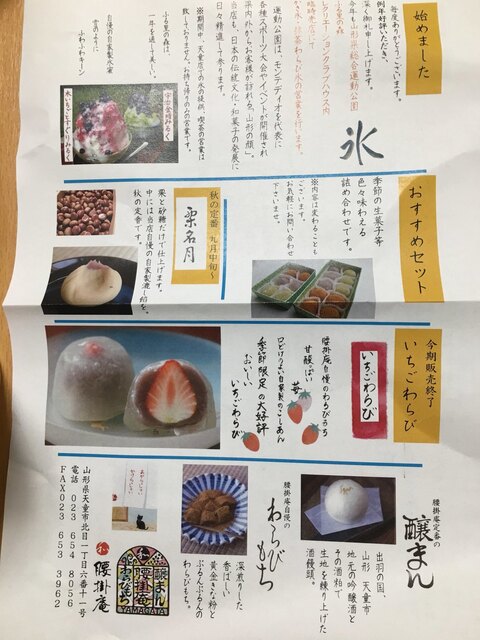 始めました
毎度ありがとうございます。
例年好評いただき、
深く御礼申し上げます。
今年も山形県総合運動公園
ふる里の森
レクリエーションクラブハウス内
臨時売店にて
かき氷・抹茶わらび氷の営業を行います。
氷
運動公園は、モンテディオを代表に
各種スポーツ大会やイベントが開催され
県内外からお客様が訪れる「山形の顔」。
当店も、日本の伝統文化・和菓子の発展に
日々精進して参ります。
※期間中、天童店での氷の提供、喫茶の営業は
致しておりません。お持ち帰りのみの営業です。
ふる里の森は、
一年を通して美しい。
自慢の自家製氷蜜
雪のように
ふわふわキーン
宇治金時みるく
氷いちごとすぐりみるく
おすすめセット
季節の生菓子等
色々味わえる
詰め合わせです。
※内容は変わることも
ございます。
お気軽にお問い合わせ
下さいませ。
秋の定番 九月中旬〜
栗名月
栗と砂糖だけで仕上げます。
中には当店自慢の自家製漉し餡を。
秋の定番です。
今期販売終了
いちごわらび
いちごわらび
腰掛庵自慢のわらびもち
甘酸っぱい
苺
口どけのよい自家製のこしあん
季節限定の大好評
おいしい
いちごわらび
腰掛庵定番の
醸まん
出羽の国、
山形 天童市
地元の吟醸酒と
その酒粕で
生地を練り上げた
酒饅頭。
腰掛庵自慢の
わらびもち
深煎りした
香ばしい
黄金きな粉と
ぷるんぷるんの
わらびもち。
醸まん
腰掛庵
わらびもち
YAMAGATA
腰掛庵
山形県天童市北目一丁目六番十一号
電話 023 654 8056
FAX023 653 3962